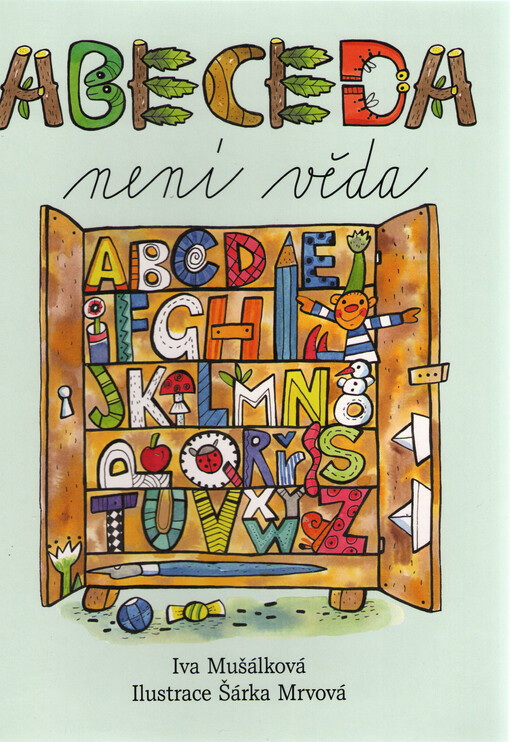 ABECEDA
není věda
ABCDE
FGHI
JKLMNO
PQRŘS
TUVXYWZ
Iva Mušálková
Ilustrace Šárka Mrvová